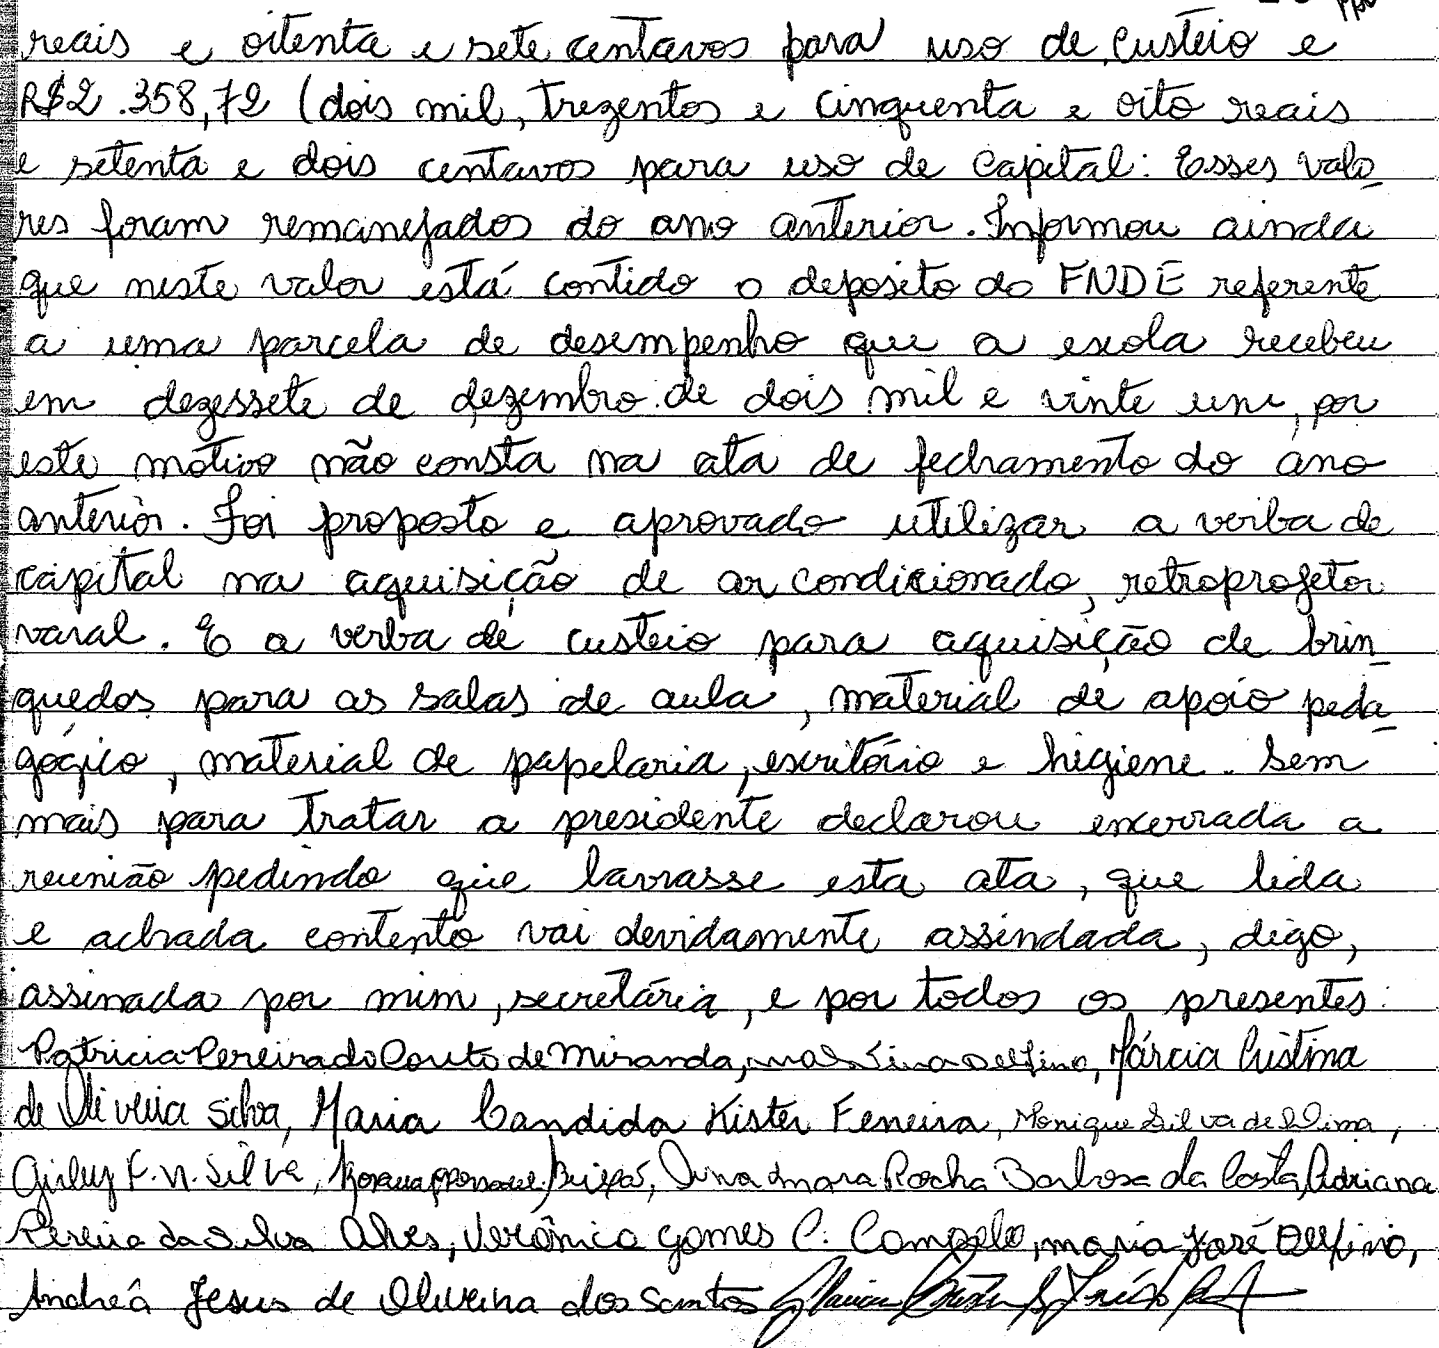 reais e oitenta e sete centavos para uso de custeio e
R$2.358,72 (dois mil, trezentos e cinquenta e oito reais
e setenta e dois centavos para uso de capital: Esses valo_
res foram remanejados do ano anterior. Informou ainda
que neste valor está contido o deposito do FNDE referente
a uma parcela de desempenho que a escola recebeu
em dezessete de dezembro de dois mil e vinte um, por
este motivo não consta na ata de fechamento do ano
anterior. Foi proposto e aprovado utilizar a verba de
capital na aquisição de ar condicionado, retroprojetor
varal. E a verba de custeio para aquisição de brin_
quedos para as salas de aula, material de apoio peda_
gógico, material de papelaria, escritório e higiene. Sem
mais para tratar a presidente declarou encerrada a
reunião pedindo que lavrasse esta ata, que lida
e achada contento vai devidamente assindada, digo,
assinada por mim, secretária, e por todos os presentes:
Patricia Pereira do Couto de Miranda, Márcia Cristina
de Oliveira Silva, Maria Candida Kister Ferreira, Monique Silva de Lima,
F. N. Silva, Rocha Barbosa da Costa, Adriana
Pereira da Silva Alves, Verônica Gomes C. Campelo, Maria José Delfino,
Andreâ Jesus de Oliveira dos Santos